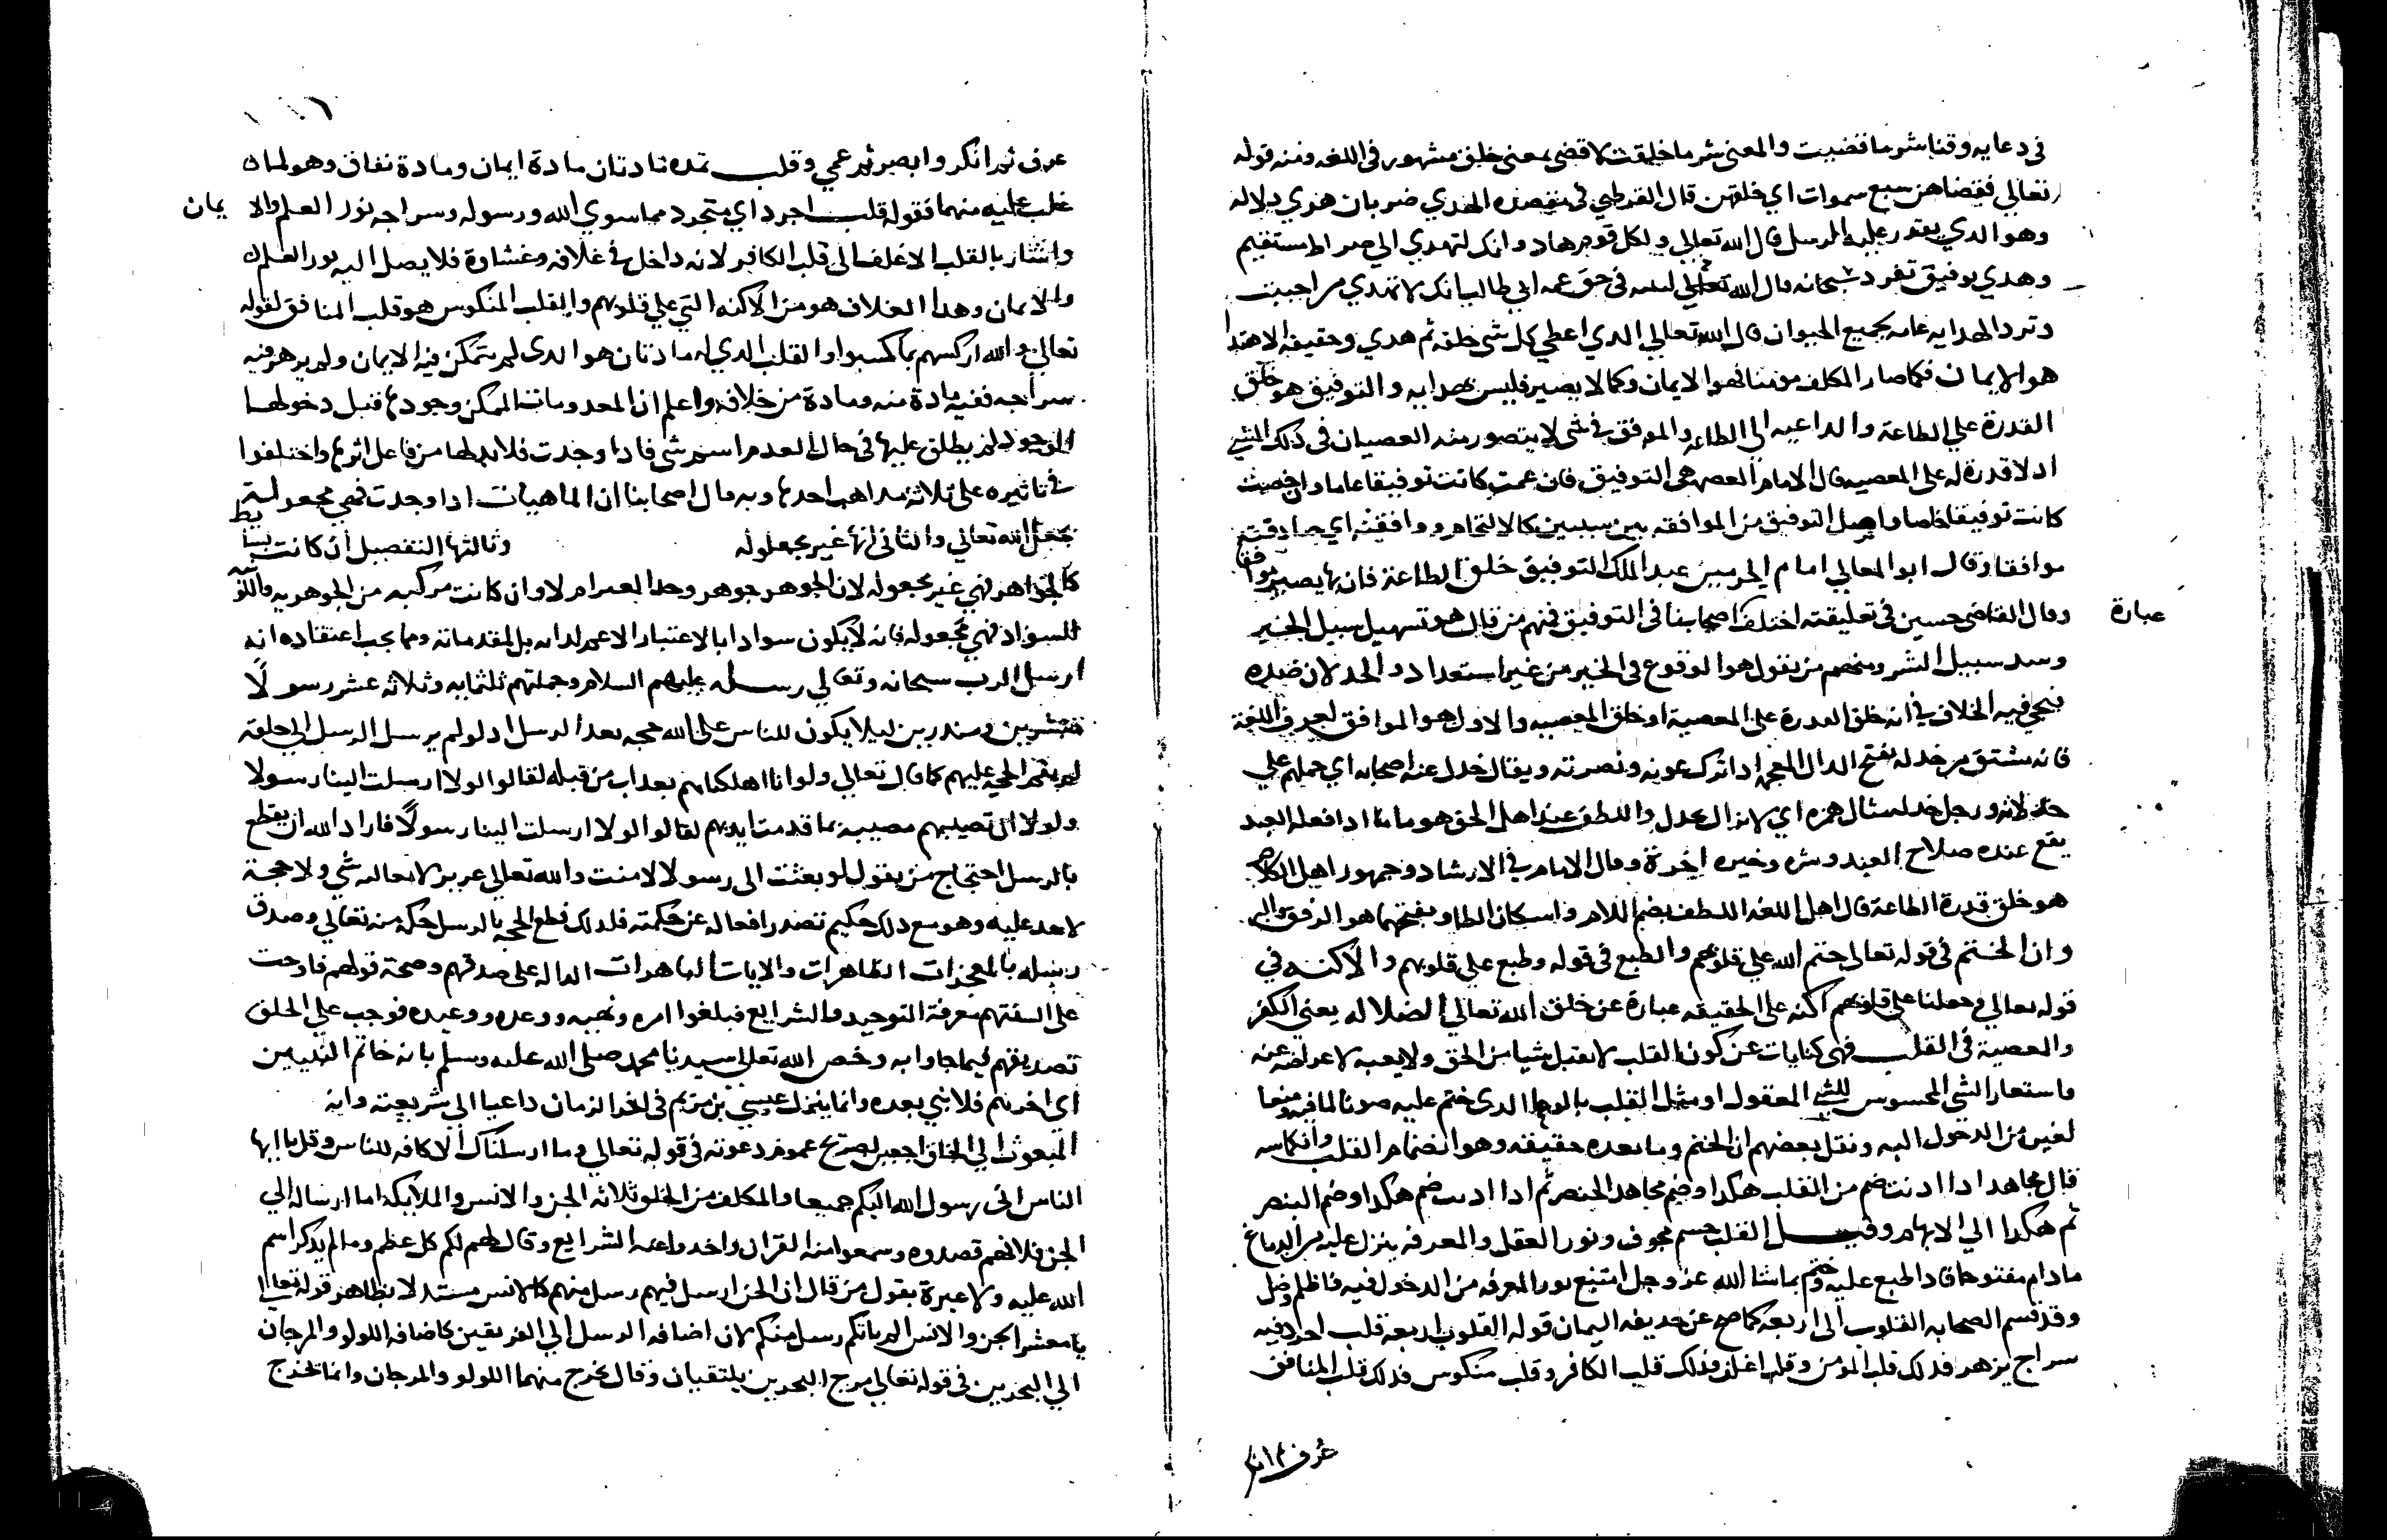 في دعايه وقنا شر ما قضيت والمعنى شر ما خلقت لا قضى بمعنى خلق مشهور في اللغه ومنه قوله
تعالي فقضاهن سبع سموات اي خلقهن قال القرطبي في الهدي ضربان هدي دلاله
وهو الدي يقدر عليه الرسل قال الله تعالي ولكل قوم هاد وانك لتهدي الي صراط مستقيم
وهدي توفيق تفرد سبحانه قال الله تعالي لنبيه في حق عمه ابي طالب انك لا تهدي من احببت
وترد الهدايه عامه بجميع الحيوان قال الله تعالي الدي اعطي كل شي خلقه ثم هدي وحقيقه الاهتدا
هو الايمان فكما صار المكلف مومنا فهو الايمان وكما لا يصير فليس بهدايه والتوفيق هو خلق
القدرة علي الطاعة والداعيه الي الطاعه والموفق في شي لا يتصور منه العصيان في ذلك الشي
اد لا قدرة له علي المعصيه قال الامام العصمه هي التوفيق فان عمت كانت توفيقا عاما وان خصت
كانت توفيقا خاصا واصل التوفيق من الموافقه بين سببين كالالتحام ووافقته اي صادقته
موافقا وقال ابو المعالي امام الحرمين عبد الملك التوفيق خلق الطاعة فان بها يصير موفقا
وقال القاضي حسين في تعليقته اختلف اصحابنا في التوفيق فمنهم من قال هو تسهيل سبيل الخير
عبارة
وسد سبيل الشر ومنهم من يقول هو الوقوع في الخير من غير استعداد والخد لان ضده
فيجي فيه الخلاف في انه خلق القدرة علي المعصية او خلق المعصيه والاول هو الموافق لعرف اللغة
فانه مشتق من خدله بفتح الدال المعجمه ادا ترك عونه ونصرته ويقال خدل عنه اصحابه اي حملهم علي
خدلانه ورجل خدله مثال همزه اي لا يزال يخدل واللطف عند اهل الحق هو ما اذا فعله العبد
يقع عنده صلاح العبد وشره وخيره اخرة وقال الامام في الارشاد وجمهور اهل الكلام
هو خلق قدرة الطاعة قال اهل اللغه اللطف بضم اللام واسكان الطا وبفتحهما هو الرفق والبر
وان الختم في قوله تعالي ختم الله علي قلوبهم والطبع في قوله وطبع علي قلوبهم والاكنه في
قوله تعالي وجعلنا علي قلوبهم اكنه علي الحقيقه عبارة عن خلق الله تعالي الضلاله يعني الكفر
والمعصية في القلب فهي كنايات عن كون القلب لا يقبل شيا من الحق ولا يعيه لاعراضه عنه
واستعار الشي المحسوس للشي المعقول او مثل القلب بالوعا الدي ختم عليه صونا لما فيه ومنعا
لغيره من الدخول اليه ونقل بعضهم ان الختم وما بعده حقيقه وهو انضمام القلب وانكماشه
قال مجاهد ادا ادنبت ضم من القلب هكدا وضم مجاهد الخنصر ثم ادا ادنبت ضم هكدا وضم البنصر
ثم هكدا الي الابهام وقيل القلب جسم مجوف ونور العقل والمعرفه ينزل عليه من الدماغ
مادام مفتوحا فادا طبع عليه وختم بما شا الله عز وجل امتنع نور المعرفه من الدخول فيه فاظلم وضل
وقد قسم الصحابه القلوب الي اربعه كما صح عن حديفه اليمان قوله القلوب اربعة قلب اجرد فيه
سراج يزهر فدلك قلب المومن وقلب اغلف فدلك قلب الكافر وقلب منكوس فدلك قلب المنافق
عرف ثم انكر
عرف ثم انكر وابصر ثم عمي وقلب تمده مادتان مادة ايمان ومادة نفاق وهو لما
غلب عليه منهما فقوله قلب اجرد اي متجرد مما سوي الله ورسوله وسراجه نور العلم والا يمان
واشار بالقلب الاغلف الي قلب الكافر لانه داخل في غلافه وغشاوة فلا يصل اليه نور العلم
والايمان وهدا الغلاف هو من الاكنه التي علي قلوبهم والقلب المنكوس هو قلب المنافق لقوله
تعالي والله اركسهم بما كسبوا والقلب الدي له مادتان هو الدي لم يتمكن فيه الايمان ولم يزهر فيه
سراجه ففيه مادة منه ومادة من خلافه واعلم ان المعدومات الممكن وجودها قبل دخولها
الوجود لم يطلق عليها في حال العدم اسم شي فادا وجدت فلا بد لها من فاعل اثر بها واختلفوا
في تاثيره علي ثلاثة مداهب احدها وبه قال اصحابنا ان الماهيات ادا وجدت فهي مجعوله
بجعل الله تعالي والثاني انها غير مجعوله وثالثها التفصيل ان كانت بسيط
كالجواهر فهي غير مجعوله لان الجوهر جوهر وجد الغير ام لا وان كانت مركبه من الجوهريه واللون
السواد فهي مجعوله فانه لا يكون سوادا بالاعتبار الاعم لداته بل لمقدماته ومما يجب اعتقاده انه
ارسل الرب سبحانه وتعالي رسله عليهم السلام وجملتهم ثلثمايه وثلاثه عشر رسولا
مبشرين ومندرين ليلا يكون للناس علي الله حجه بعد الرسل اد لو لم يرسل الرسل الي خلقه
لم تقم الحجه عليهم كما قال تعالي ولو انا اهلكناهم بعداب من قبله لقالوا لولا ارسلت الينا رسولا
ولولا ان تصيبهم مصيبة بما قدمت ايديهم لقالوا لولا ارسلت الينا رسولا فاراد الله ان يقطع
بالرسل احتجاج من يقول لو بعثت الي رسولا لامنت والله تعالي عزيز لا شي ولا حجة
لاحد عليه وهو مع دلك حكيم تصدر افعاله عن حكمته فلدلك قطع الحجه بالرسل حكمة منه تعالي وصدق
رسله بالمعجزات الظاهرات والايات الباهرات الداله علي صدقهم وصحة قولهم فاوجب
علي السنتهم معرفة التوحيد والشرايع فبلغوا امره ونهيه ووعده ووعيده فوجب علي الخلق
تصديقهم فيما جاوا به وخص الله تعالي سيدنا محمد صلي الله عليه وسلم بانه خاتم النبيين
اي اخرهم فلا نبي بعده وانما ينزل عيسي بن مريم في اخر الزمان داعيا الي شريعته وانه
المبعوث الي الخلق اجمعين لصريح عموم دعوته في قوله تعالي وما ارسلناك الا كافه للناس وقل يا ايها
الناس اني رسول الله اليكم جميعا والمكلف من الخلق ثلاثه الجن والانس والملايكه اما ارساله الي
الجن فلانهم قصدوه وسمعوا منه القران واخدوا عنه الشرايع وقال لهم لكم كل عظم وما لم يدكر اسم
الله عليه ولا عبرة بقول من قال ان الجن ارسل فيهم رسل منهم كالانس مستدلا بظاهر قوله تعالي
يا معشر الجن والانس الم ياتكم رسل منكم لان اضافه الرسل الي الفريقين كاضافه اللولو والمرجان
الي البحرين في قوله تعالي مرج البحرين يلتقيان وقال يخرج منهما اللولو والمرجان وانما تخرج